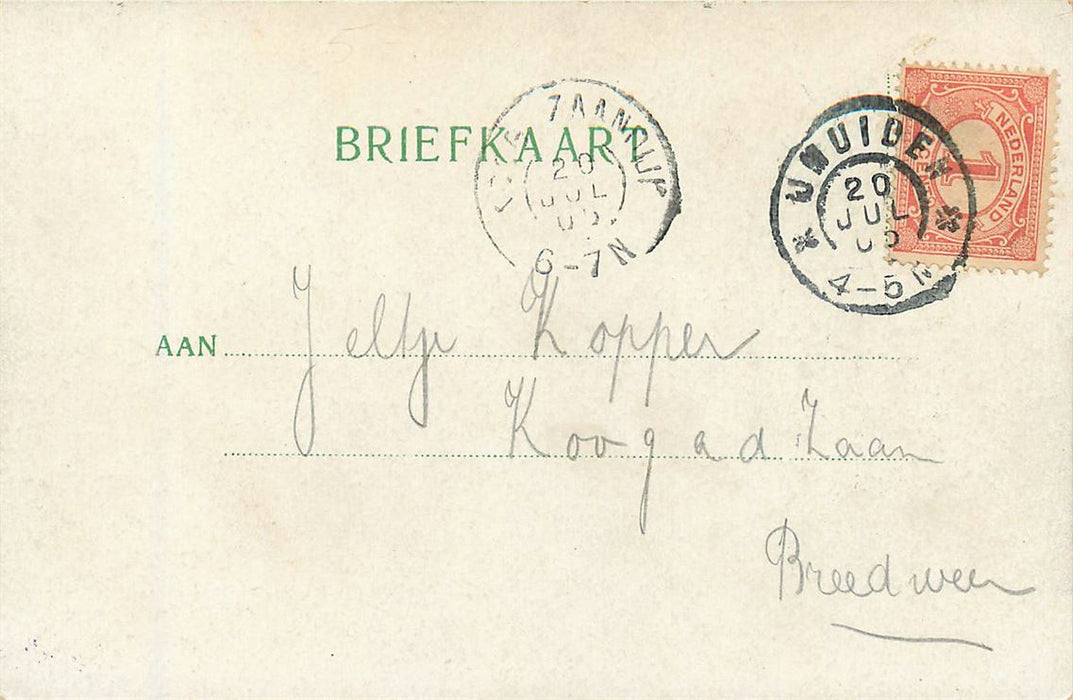 BRIEFKAART
20
JUL
6-7N
IJMUIDEN
20
JUL
4-5N
NEDERLAND
1
AAN Jeltje Kopper
Koog a d Zaan
Breedweer